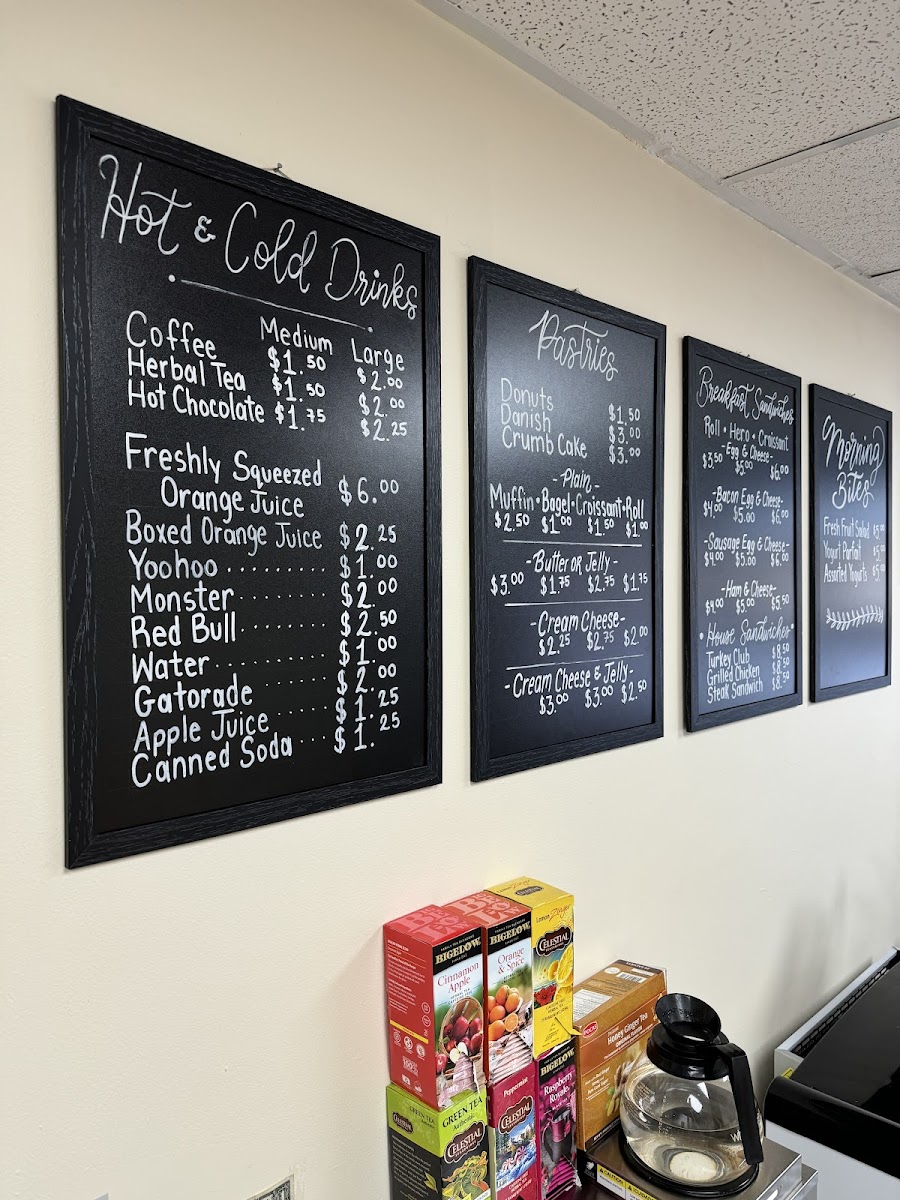 Hot & Cold Drinks
Medium Large
Coffee $1.50 $2.00
Herbal Tea $1.50 $2.00
Hot Chocolate $1.75 $2.25
Freshly Squeezed
Orange Juice $6.00
Boxed Orange Juice $2.25
Yoohoo ........ $1.00
Monster ........ $2.00
Red Bull ........ $2.50
Water ........ $1.00
Gatorade ...... $2.00
Apple Juice ..... $1.25
Canned Soda ... $1.25
Pastries
Donuts $1.50
Danish $3.00
Crumb Cake $3.00
-Plain-
Muffin•Bagel•Croissant•Roll
$2.50 $1.00 $1.50 $1.00
-Butter or Jelly-
$3.00 $1.75 $2.75 $1.75
-Cream Cheese-
$2.25 $2.75 $2.00
-Cream Cheese & Jelly-
$3.00 $3.00 $2.50
Breakfast Sandwiches
Roll • Hero • Croissant
-Egg & Cheese-
$3.50 $5.00 $6.00
-Bacon Egg & Cheese-
$4.00 $5.00 $6.00
-Sausage Egg & Cheese-
$4.00 $5.00 $6.00
-Ham & Cheese-
$4.00 $5.00 $5.50
•House Sandwiches•
Turkey Club $8.50
Grilled Chicken $8.50
Steak Sandwich $8.50
Morning
Bites
Fresh Fruit Salad $5.
Yogurt Parfait $5.
Assorted Yogurts $5.
BIGELOW
Cinnamon
Apple
BIGELOW
Orange
& Spice
Lemon Zinger
CELESTIAL
GREEN TEA
Authentic
CELESTIAL
Peppermint
CELESTIAL
BIGELOW
Raspberry
Royale
Honey Ginger Tea
CAUTION